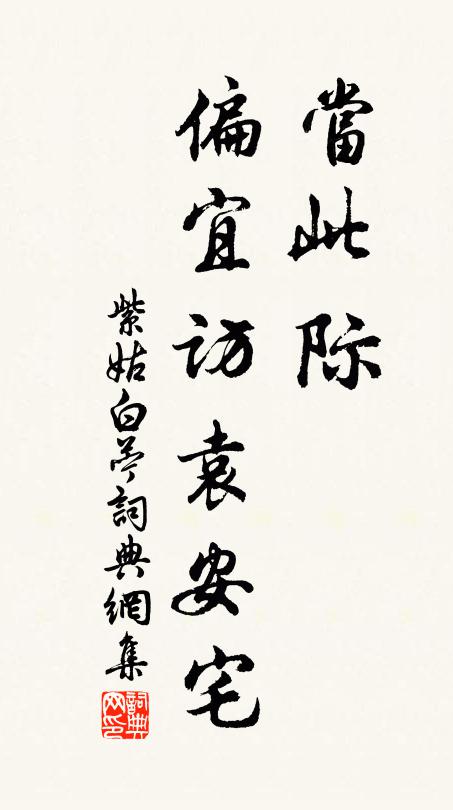 當此际
偏宜访袁安宅
紫姑白苧詞典網集
詞典网印